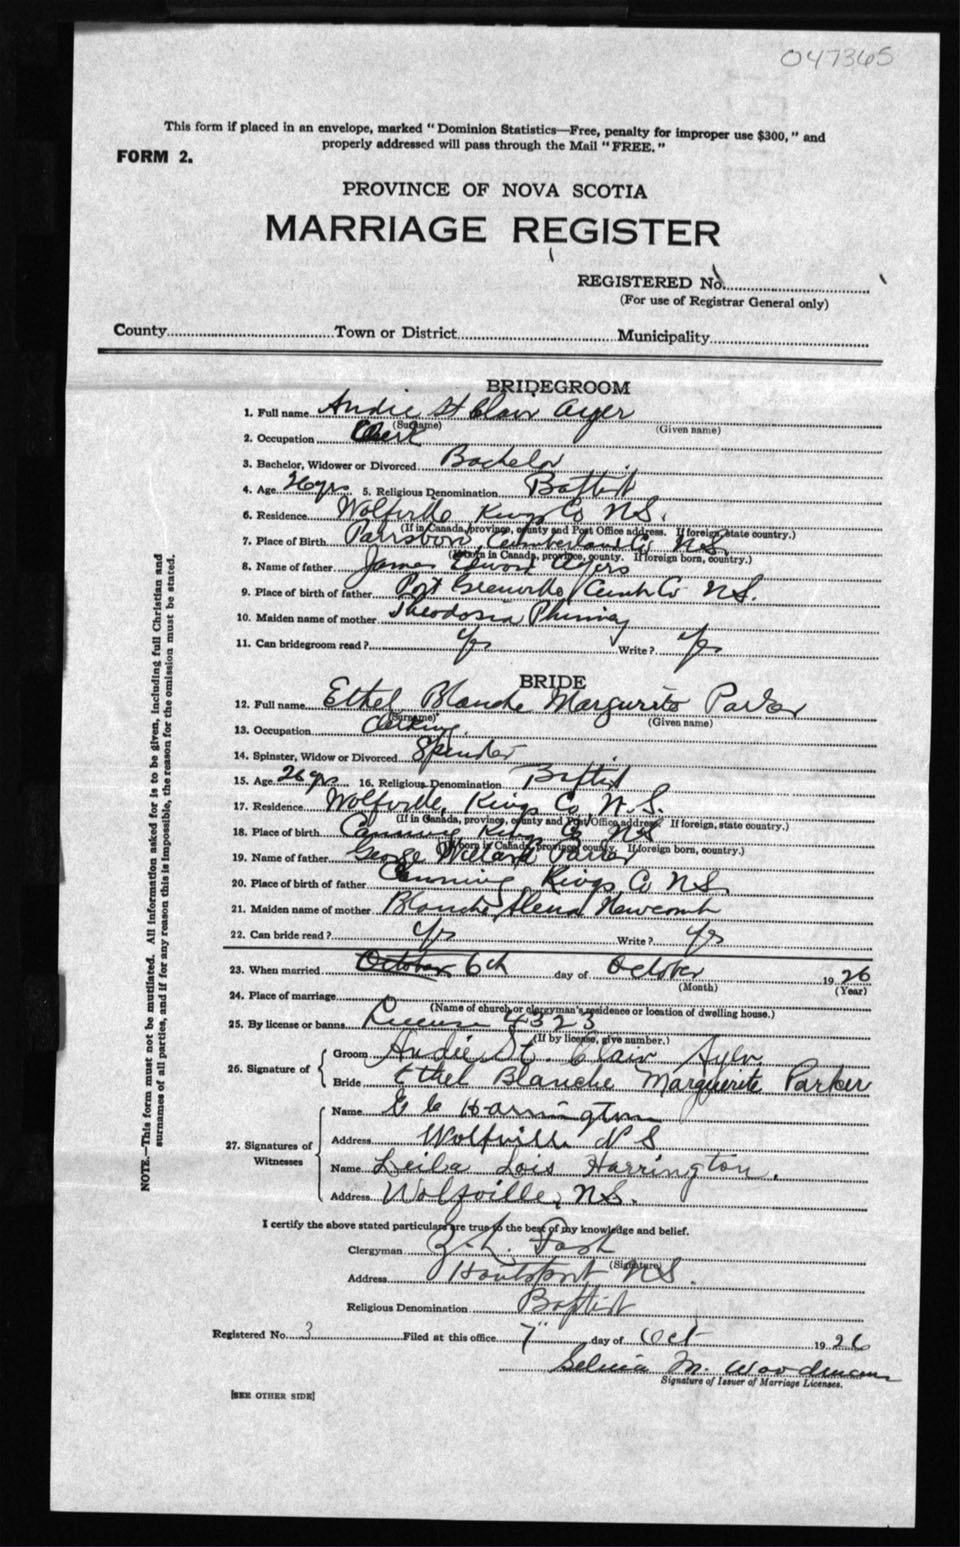 047365
This form if placed in an envelope, marked "Dominion Statistics—Free, penalty for improper use $300," and
properly addressed will pass through the Mail "FREE."
FORM 2.
PROVINCE OF NOVA SCOTIA
MARRIAGE REGISTER
REGISTERED No.
(For use of Registrar General only)
County Town or District Municipality
BRIDEGROOM
1. Full name Andie St Clair Ayer
(Surname) (Given name)
2. Occupation Clerk
3. Bachelor, Widower or Divorced Bachelor
4. Age 26 yrs 5. Religious Denomination Baptist
6. Residence Wolfville Kings Co N.S.
(If in Canada, province, county and Post Office address. If foreign, state country.)
7. Place of Birth Parrsboro, Cumberland Co N.S.
(If born in Canada, province, county. If foreign born, country.)
8. Name of father James Edward Ayers
9. Place of birth of father Port Greenville Cumb Co N.S.
10. Maiden name of mother Theodosia Phinney
11. Can bridegroom read? Yes Write? Yes
BRIDE
12. Full name Ethel Blanche Marguerite Parker
(Surname) (Given name)
13. Occupation Clerking
14. Spinster, Widow or Divorced Spinster
15. Age 26 yrs 16. Religious Denomination Baptist
17. Residence Wolfville, Kings Co, N.S.
(If in Canada, province, county and Post Office address. If foreign, state country.)
18. Place of birth Canning Kings Co NS
(If born in Canada, province, county. If foreign born, country.)
19. Name of father George Willard Parker
20. Place of birth of father Canning Kings Co NS
21. Maiden name of mother Blanche Alena Newcomb
22. Can bride read? Yes Write? Yes
23. When married October 6th day of October 1926
(Month) (Year)
24. Place of marriage
(Name of church or clergyman's residence or location of dwelling house.)
25. By license or banns License 4323
(If by license, give number.)
26. Signature of Groom Andie St. Clair Ayer
Bride Ethel Blanche Marguerite Parker
27. Signatures of Witnesses Name E C Harrington
Address Wolfville N S
Name Leila Lois Harrington.
Address Wolfville, N.S.
I certify the above stated particulars are true to the best of my knowledge and belief.
Clergyman Z. L. Fash
(Signature)
Address Hantsport N.S.
Religious Denomination Baptist
Registered No. 3 Filed at this office 7" day of Oct 1926
Selina M. Woodman
Signature of Issuer of Marriage Licenses.
[SEE OTHER SIDE]
NOTE.—This form must not be mutilated. All information asked for is to be given, including full Christian and
surnames of all parties, and if for any reason this is impossible, the reason for the omission must be stated.